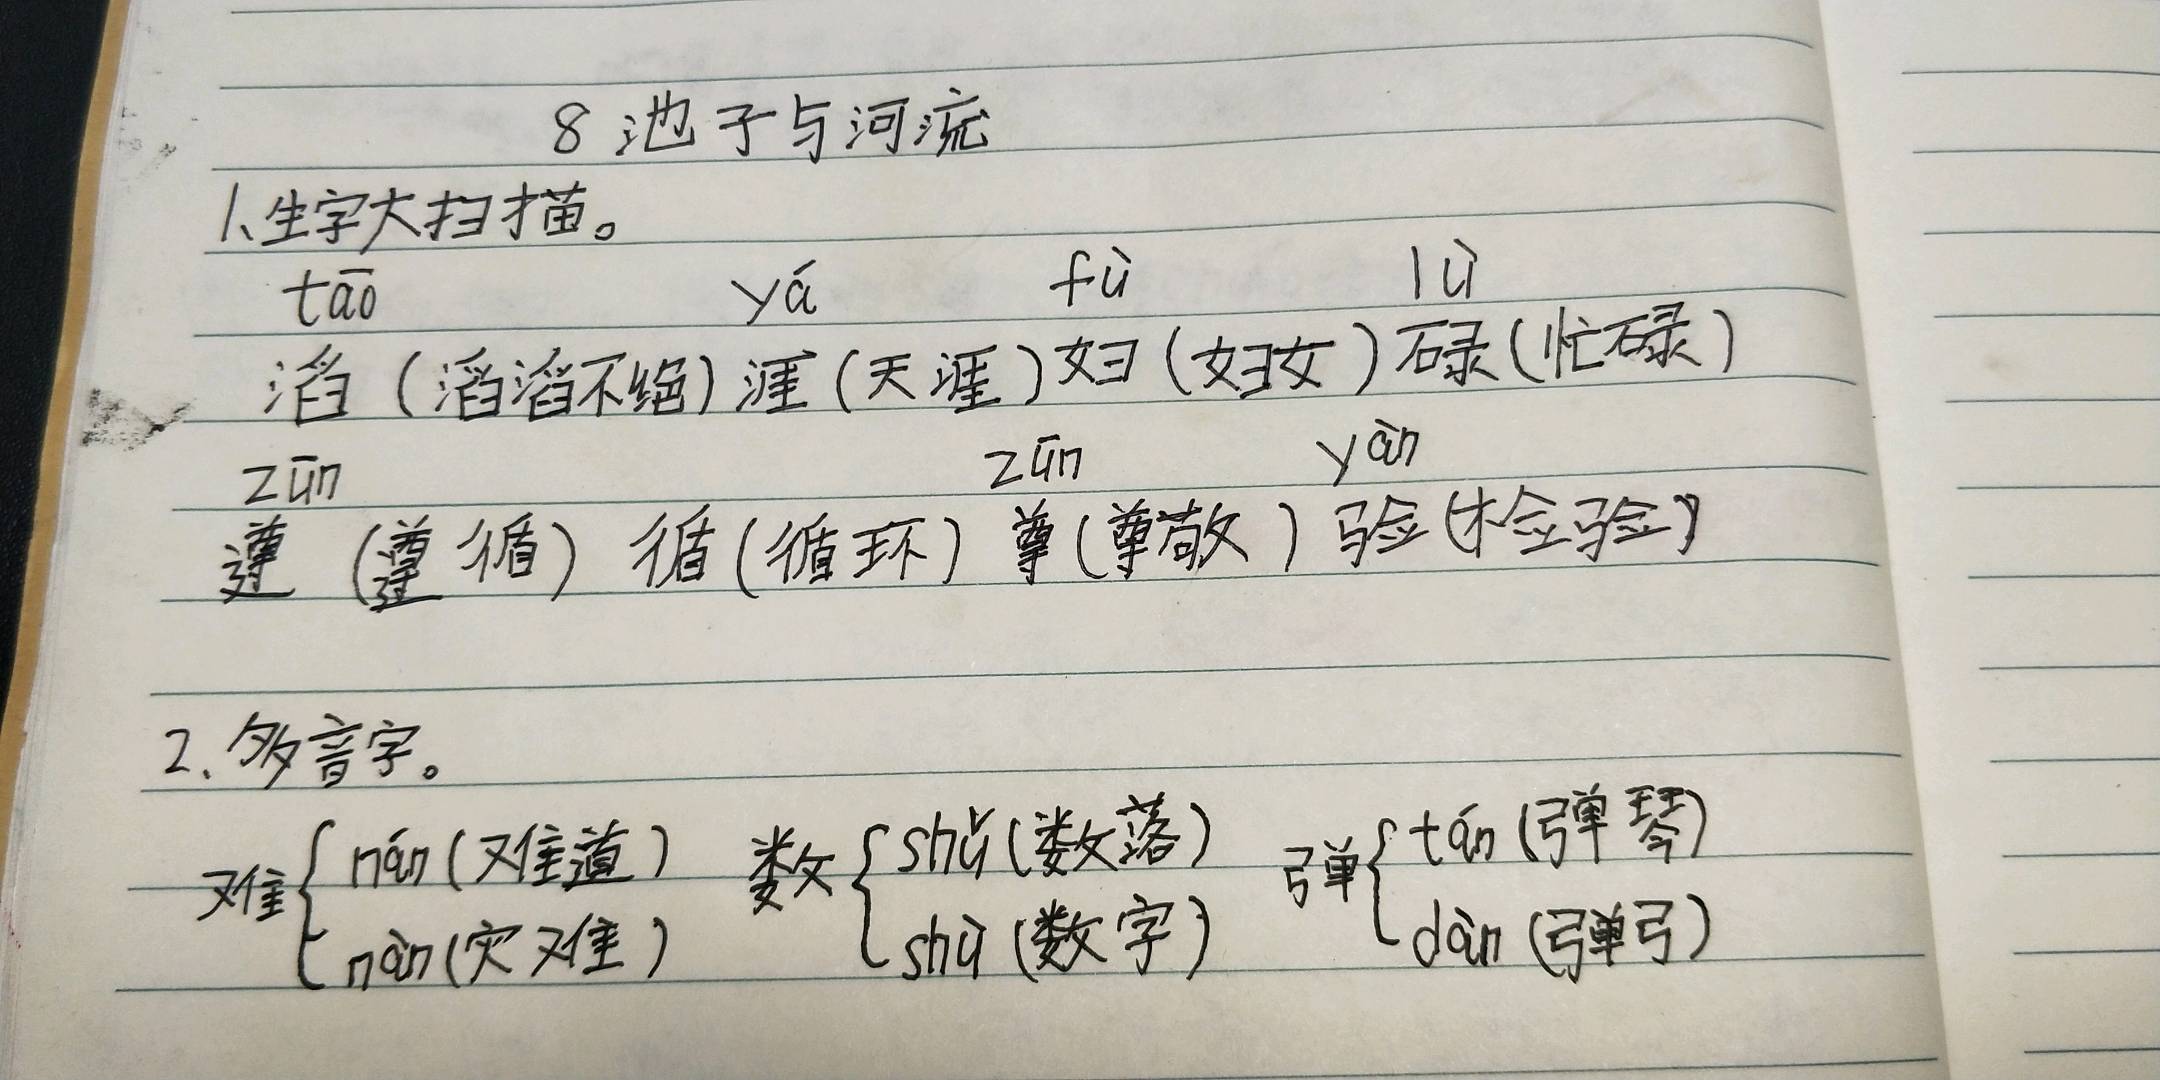 8 池子与河流
1、生字大扫描。
tāo yá fù lù
滔（滔滔不绝）涯（天涯）妇（妇女）碌（忙碌）
zūn zūn yàn
遵（遵循）循（循环）尊（尊敬）验（检验）
2、多音字。
难{nán（难道） 数{shǔ（数落） 弹{tán（弹琴）
nàn（灾难） shù（数字） dàn（弹弓）